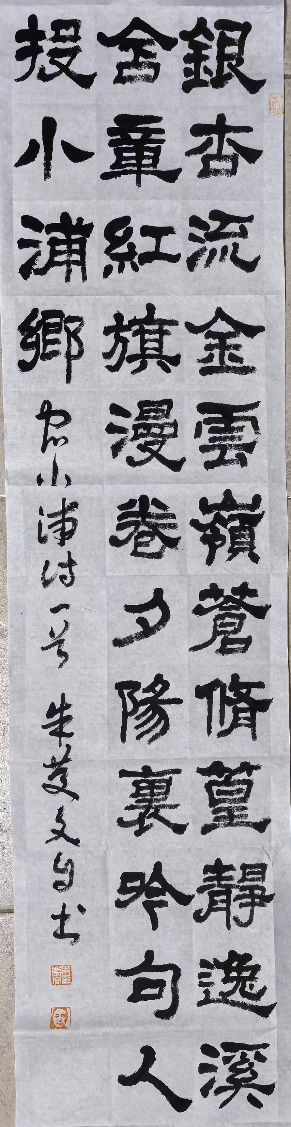 銀杏流金雲嶺蒼脩篁靜逸溪
含章紅旗漫卷夕陽裏吟句人
投小浦鄉 小浦诗一首 朱 文自书